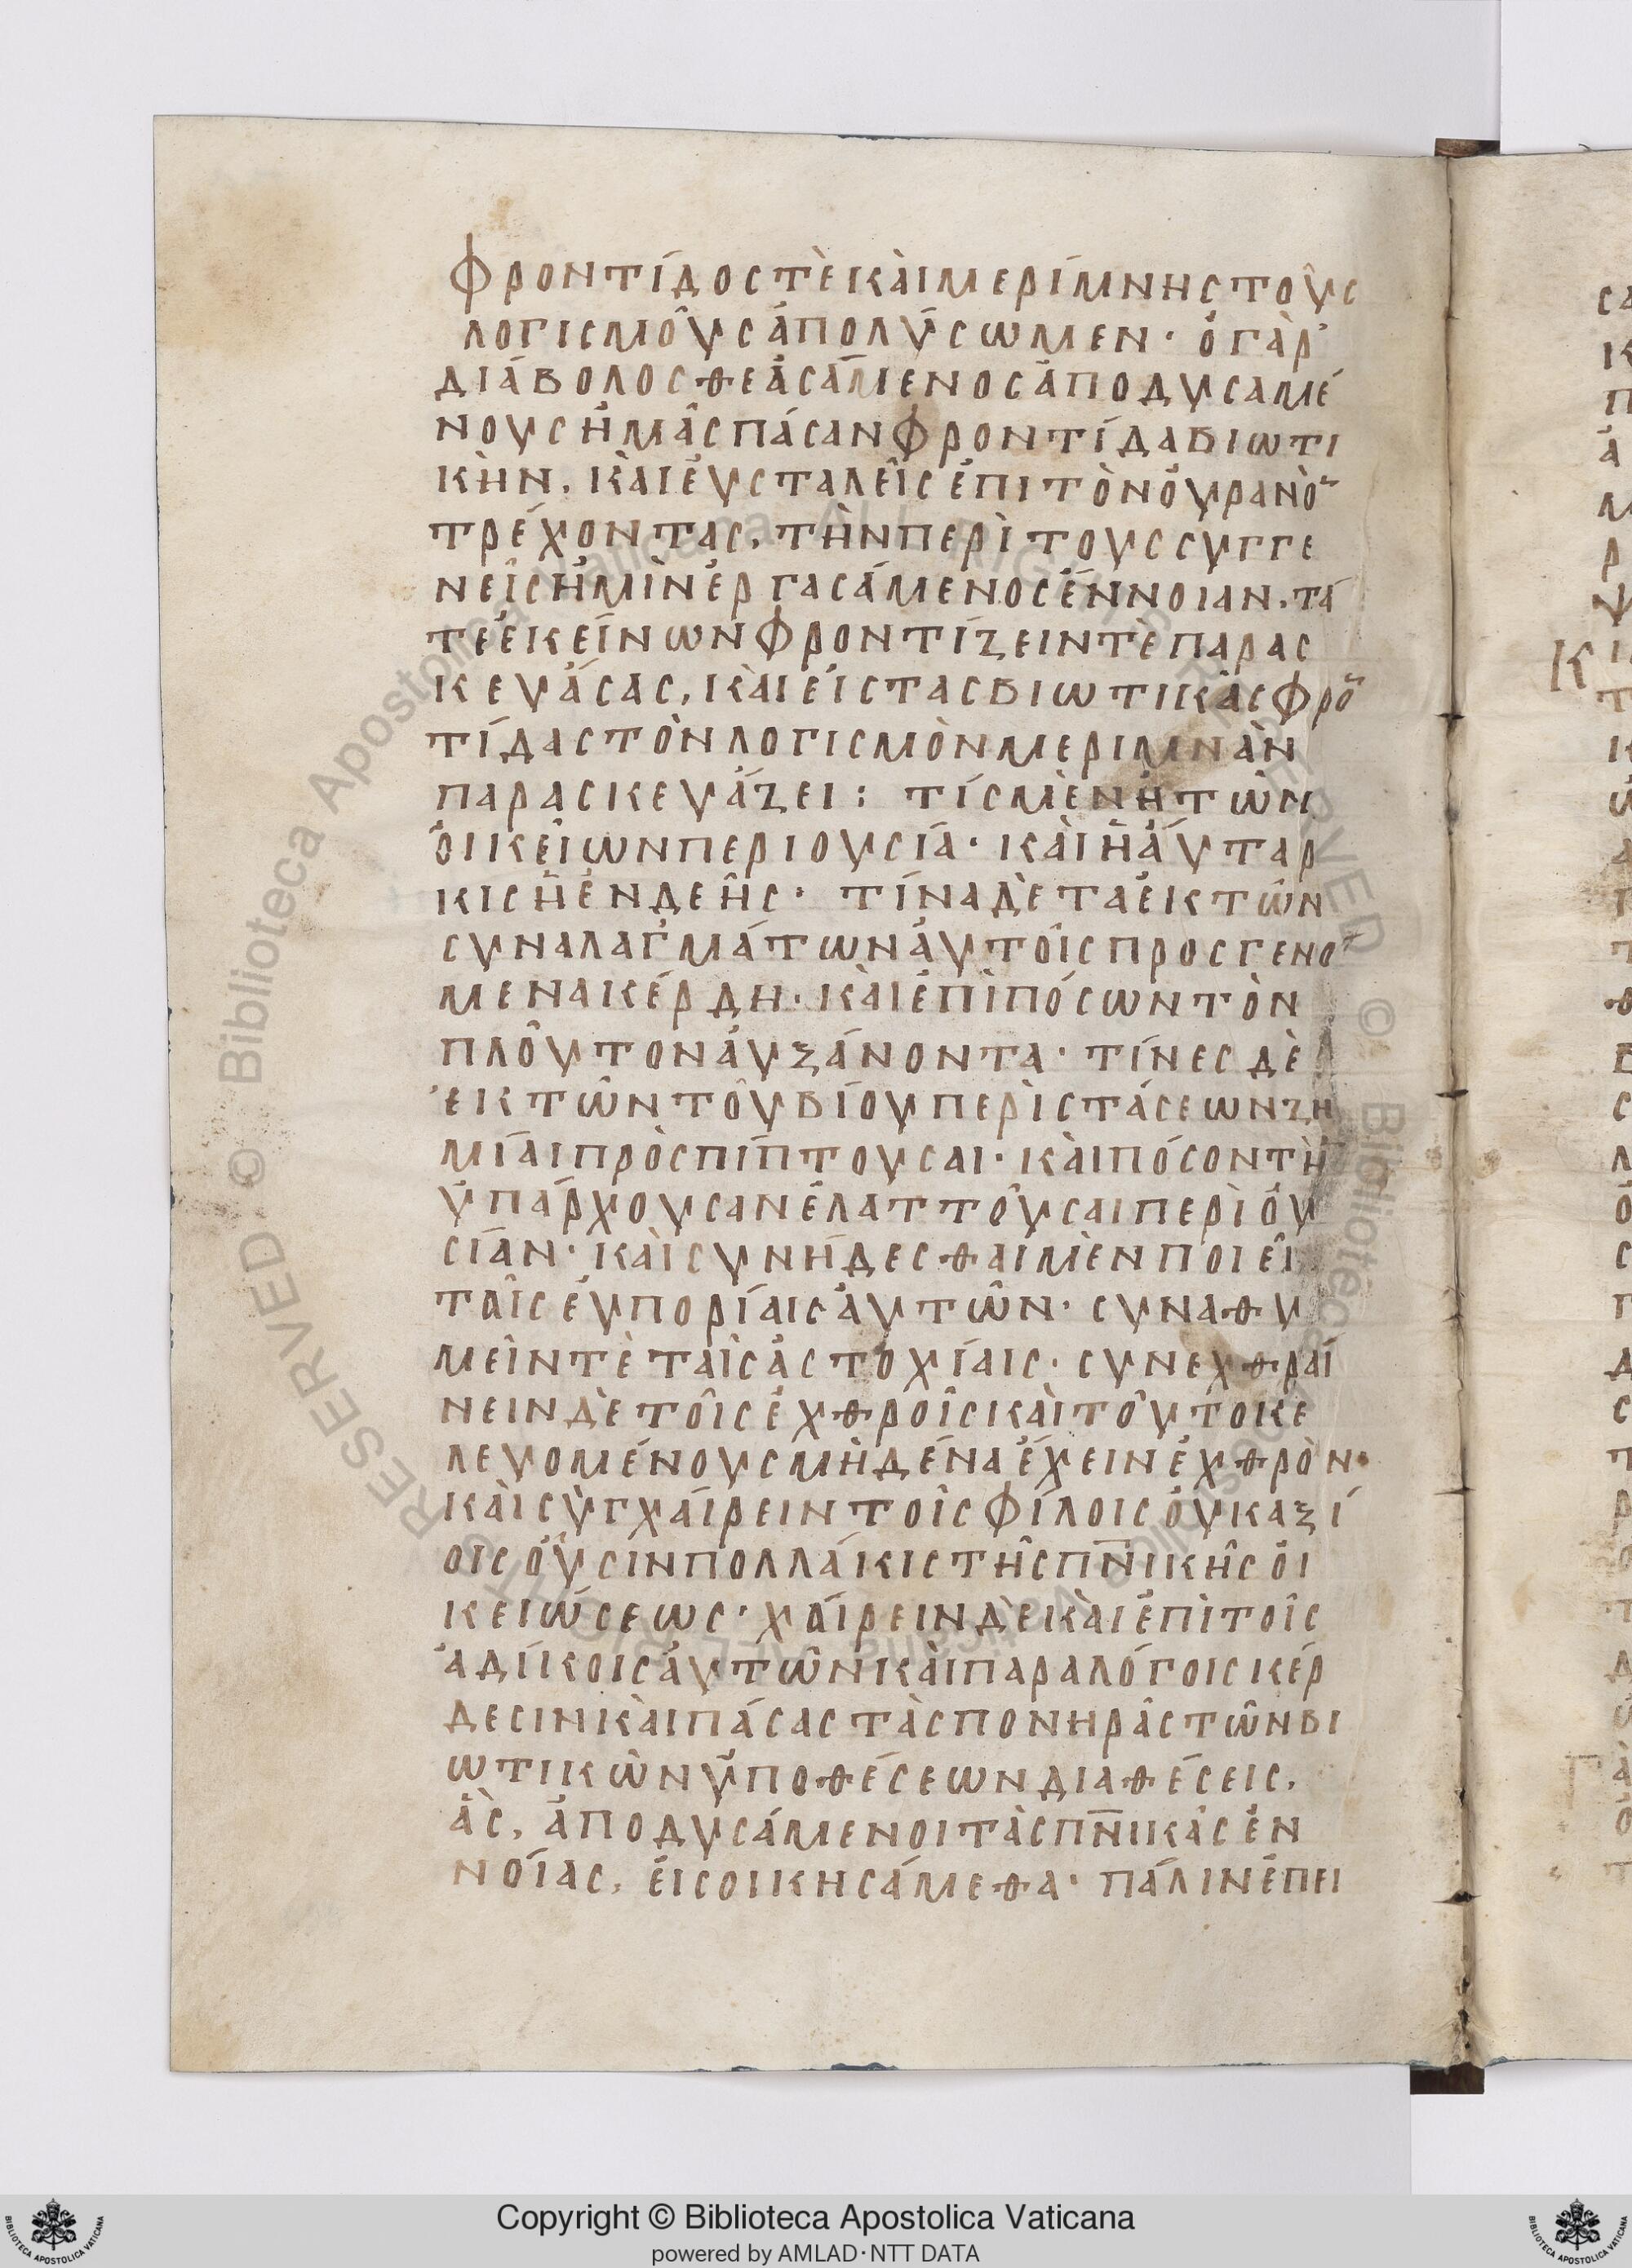 φροντίδος τὲ καὶ μερίμνης τοῦς
λογισμοῦς ἀπολύσωμεν· ὁ γὰρ
διάβολος θεασάμενος ἀποδυσαμέ
νους ἡμᾶς πάσαν φροντίδα βιωτι
κὴν, καὶ ἐυσταλεῖς ἐπι τὸν ὀυρανὸ̅
τρέχοντας, τὴν περὶ τους συγγε
νεῖς ἡμὶν ἐργασάμενος ἔννοιαν, τά
τε ἐκείνων φροντίζειν τὲ παρασ
κευάσας, καὶ ἐίς τας βιωτικὰς φρο̅
τίδας τὸν λογισμὸν μεριμνὰν
παρασκευάζει: τίς μὲν ἡ τῶν
ὀικείων περιουσία· καὶ ἡ ἀυταρ
κις ἢ ἐνδεῆς· τίνα δὲ τα ἐκ τῶν
συναλαγμάτων ἀυτοῖς προσγενο
μενα κέρδη· καὶ ἐπὶ πόσων τὸν
πλοῦτον ἀυξάνοντα· τίνες δὲ
ἐκ τῶν τοῦ βίου περὶστάσεων ζη
μίαι πρὸσπίπτουσαι· καὶ πόσον τὴ
ὑπάρχουσαν ἐλαττοῦσαι περὶου
σίαν· καὶ συνήδεσθαι μὲν ποιεῖ
ταῖς ἐυπορίαις ἀυτῶν· συναθυ
μεὶν τὲ ταὶς ἀστοχίαις· συνεχθραί
νειν δὲ τοῖς ἐχθροῖς καὶ τοῦτο κε
λευομένους μὴδένα ἔχειν ἐχθρὸν·
καὶ συγχαίρειν τοῖς φίλοις ὀυκ αξί
οις οὖσιν πολλάκις τῆς πν̅ικῆς ὀι
κειώσεως· χαίρειν δὲ καὶ ἐπὶ τοῖς
ἀδίκοις ἀυτῶν καὶ παραλόγοις κέρ
δεσιν καὶ πάσας τὰς πονηρὰς τῶν βι
ωτικῶν ὑποθέσεων διαθέσεις,
ἃς, ἀποδυσάμενοι τὰς πν̅ικὰς ἐν
νοίας, ἐισοικησάμεθα· πάλιν ἐπει
Copyright © Biblioteca Apostolica Vaticana
powered by AMLAD·NTT DATA